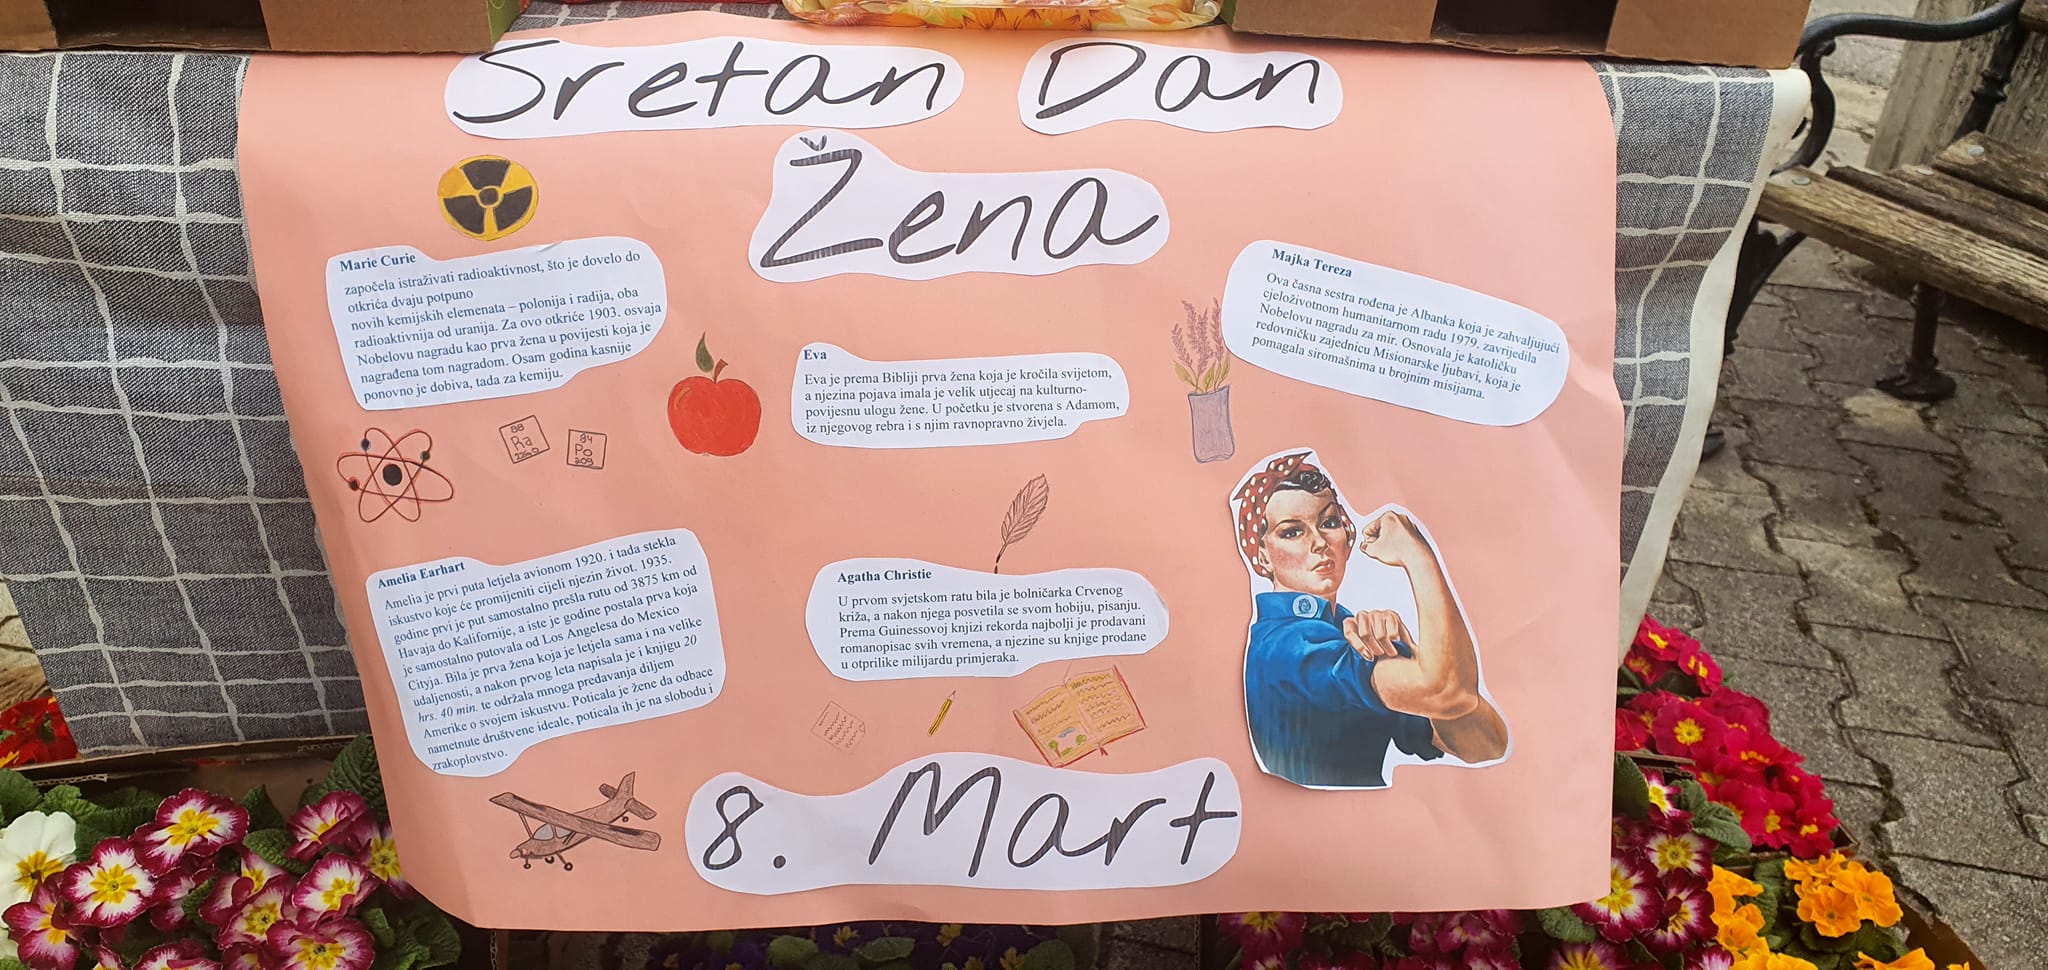 Sretan Dan
Žena
Marie Curie
započela istraživati radioaktivnost, što je dovelo do
otkrića dvaju potpuno
novih kemijskih elemenata – polonija i radija, oba
radioaktivnija od uranija. Za ovo otkriće 1903. osvaja
Nobelovu nagradu kao prva žena u povijesti koja je
nagrađena tom nagradom. Osam godina kasnije
ponovno je dobiva, tada za kemiju.
88
Ra
84
Po
209
Eva
Eva je prema Bibliji prva žena koja je kročila svijetom,
a njezina pojava imala je velik utjecaj na kulturno-
povijesnu ulogu žene. U početku je stvorena s Adamom,
iz njegovog rebra i s njim ravnopravno živjela.
Majka Tereza
Ova časna sestra rođena je Albanka koja je zahvaljujući
cjeloživotnom humanitarnom radu 1979. zavrijedila
Nobelovu nagradu za mir. Osnovala je katoličku
redovničku zajednicu Misionarske ljubavi, koja je
pomagala siromašnima u brojnim misijama.
Amelia Earhart
Amelia je prvi puta letjela avionom 1920. i tada stekla
iskustvo koje će promijeniti cijeli njezin život. 1935.
godine prvi je put samostalno prešla rutu od 3875 km od
Havaja do Kalifornije, a iste je godine postala prva koja
je samostalno putovala od Los Angelesa do Mexico
Cityja. Bila je prva žena koja je letjela sama i na velike
udaljenosti, a nakon prvog leta napisala je i knjigu 20
hrs. 40 min. te održala mnoga predavanja diljem
Amerike o svojem iskustvu. Poticala je žene da odbace
nametnute društvene ideale, poticala ih je na slobodu i
zrakoplovstvo.
Agatha Christie
U prvom svjetskom ratu bila je bolničarka Crvenog
križa, a nakon njega posvetila se svom hobiju, pisanju.
Prema Guinessovoj knjizi rekorda najbolji je prodavani
romanopisac svih vremena, a njezine su knjige prodane
u otprilike milijardu primjeraka.
8. Mart